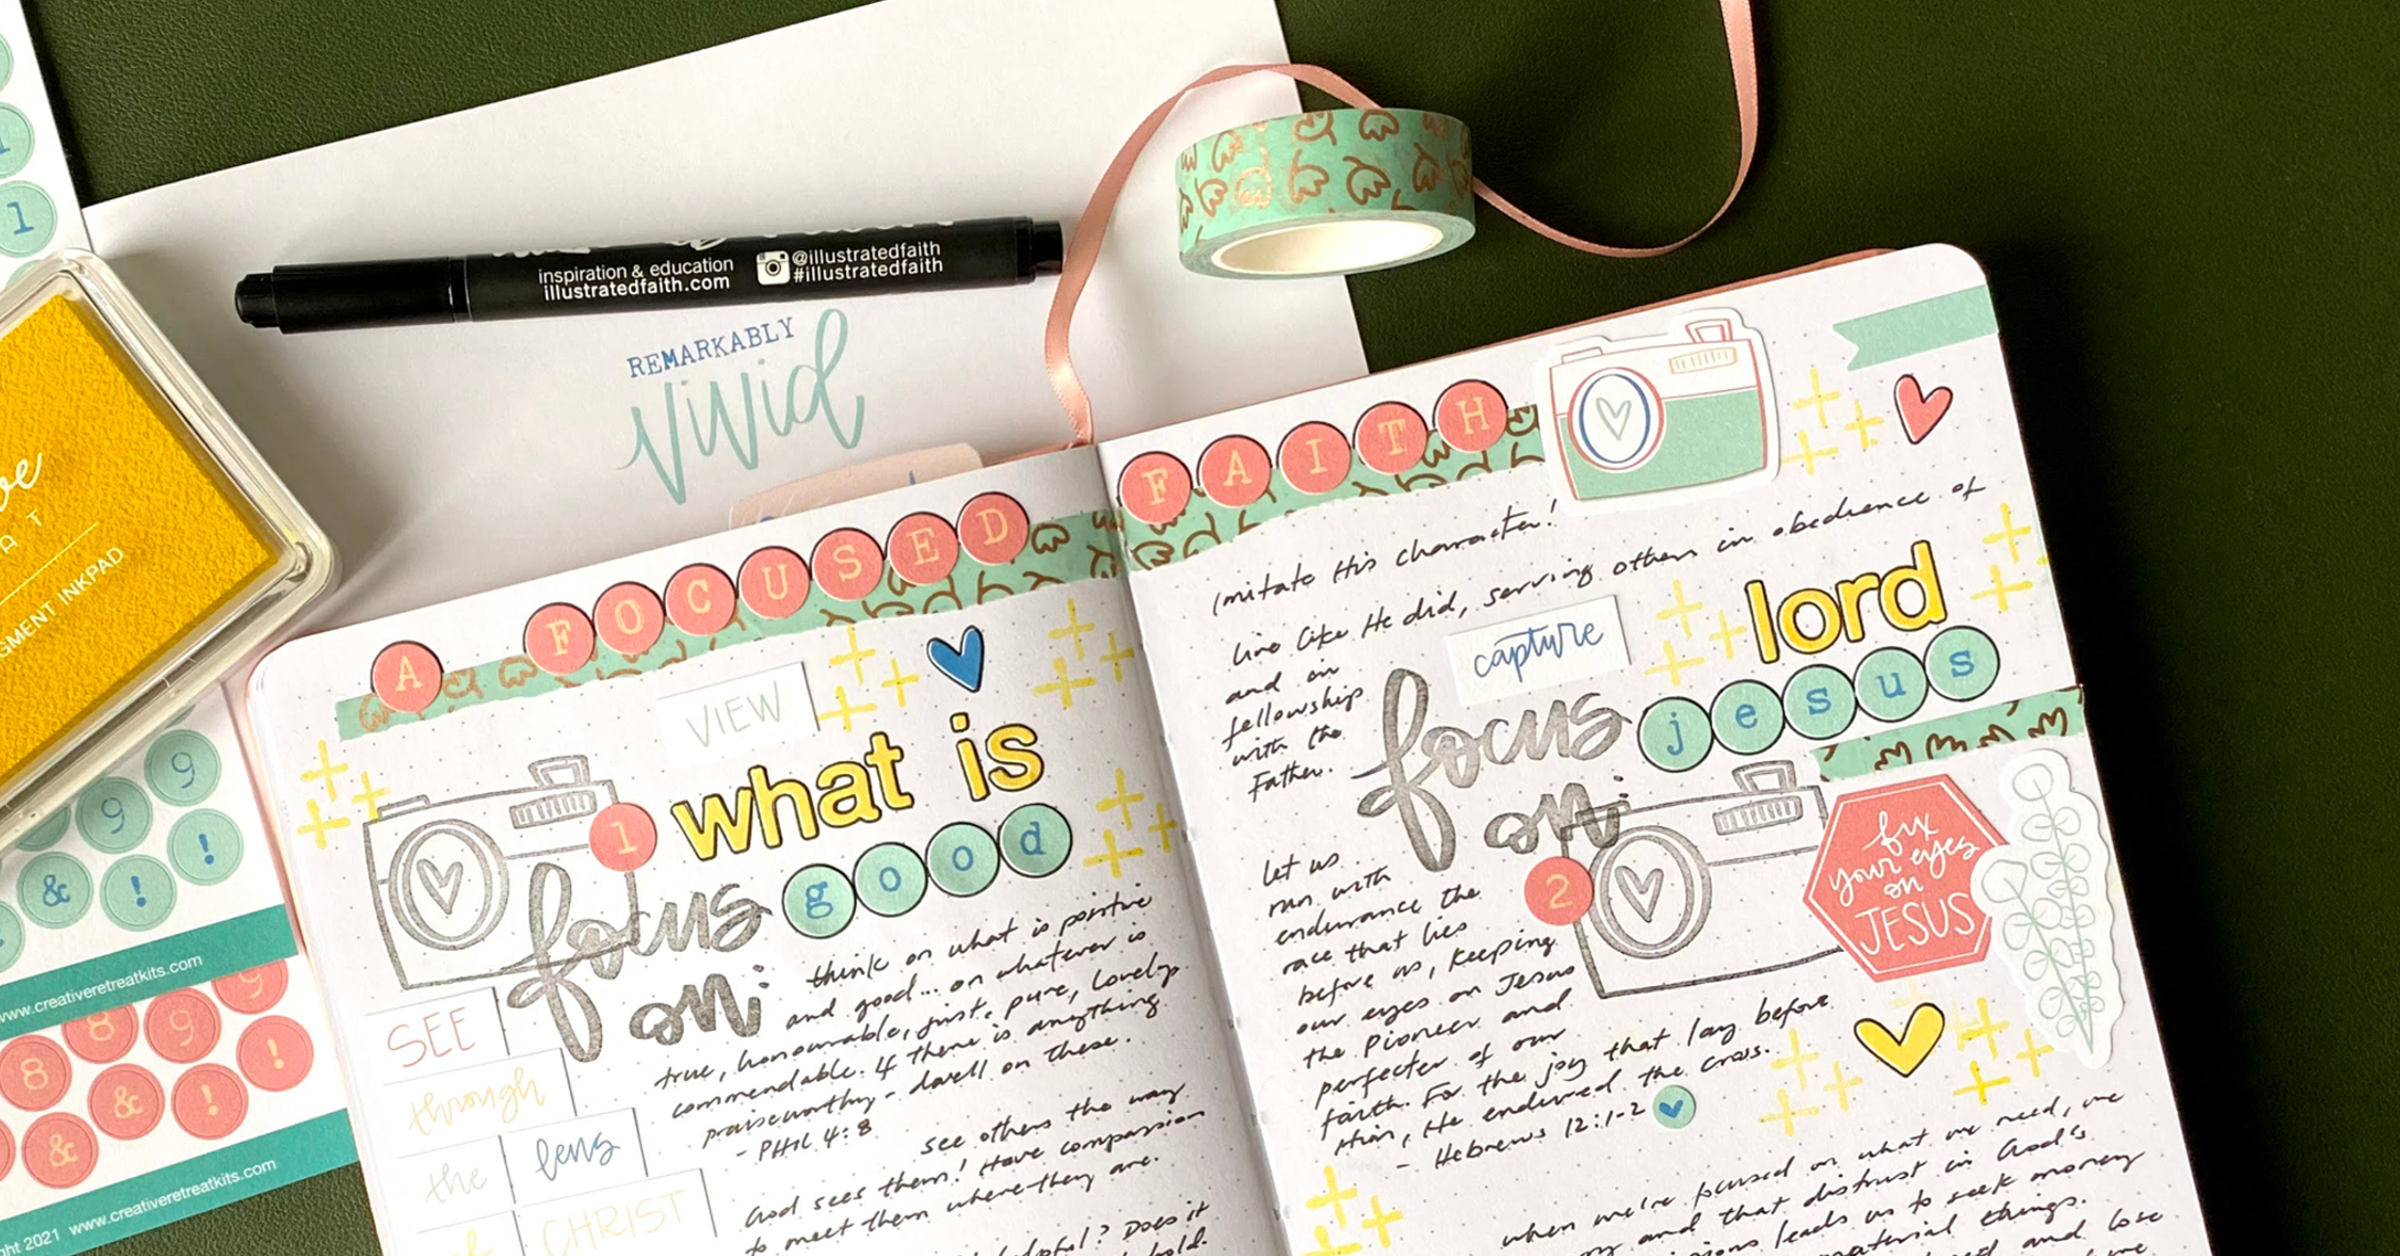 1
inspiration & education
illustratedfaith.com
@illustratedfaith
#illustratedfaith
REMARKABLY
vivid
GMENT INKPAD
9
9
& !
!
www.creativeretreatkits.com
8 9 9
8 & ! !
&
2021 www.creativeretreatkits.com
A FOCUSED FAITH
VIEW
1 what is
focus good
on:
think on what is positive
and good... on whatever is
true, honourable, just, pure, lovely
commendable. If there is anything
praiseworthy - dwell on these.
- PHIL 4:8
see others the way
God sees them! Have compassion
to meet them where they are.
Does it
hold.
SEE
through
the lens
of CHRIST
Imitate His character!
Live like He did, serving others in obedience of
and in
fellowship
with the
Father.
capture
lord
focus jesus
on:
2
fix
your eyes
on
JESUS
Let us
run with
endurance the
race that lies
before us, keeping
our eyes on Jesus
the pioneer and
perfecter of our
faith. For the joy that lay before
Him, He endured the cross.
- Hebrews 12:1-2
when we're focused on what we need, we
and that distrust in God's
leads us to seek money
material things.
and lose